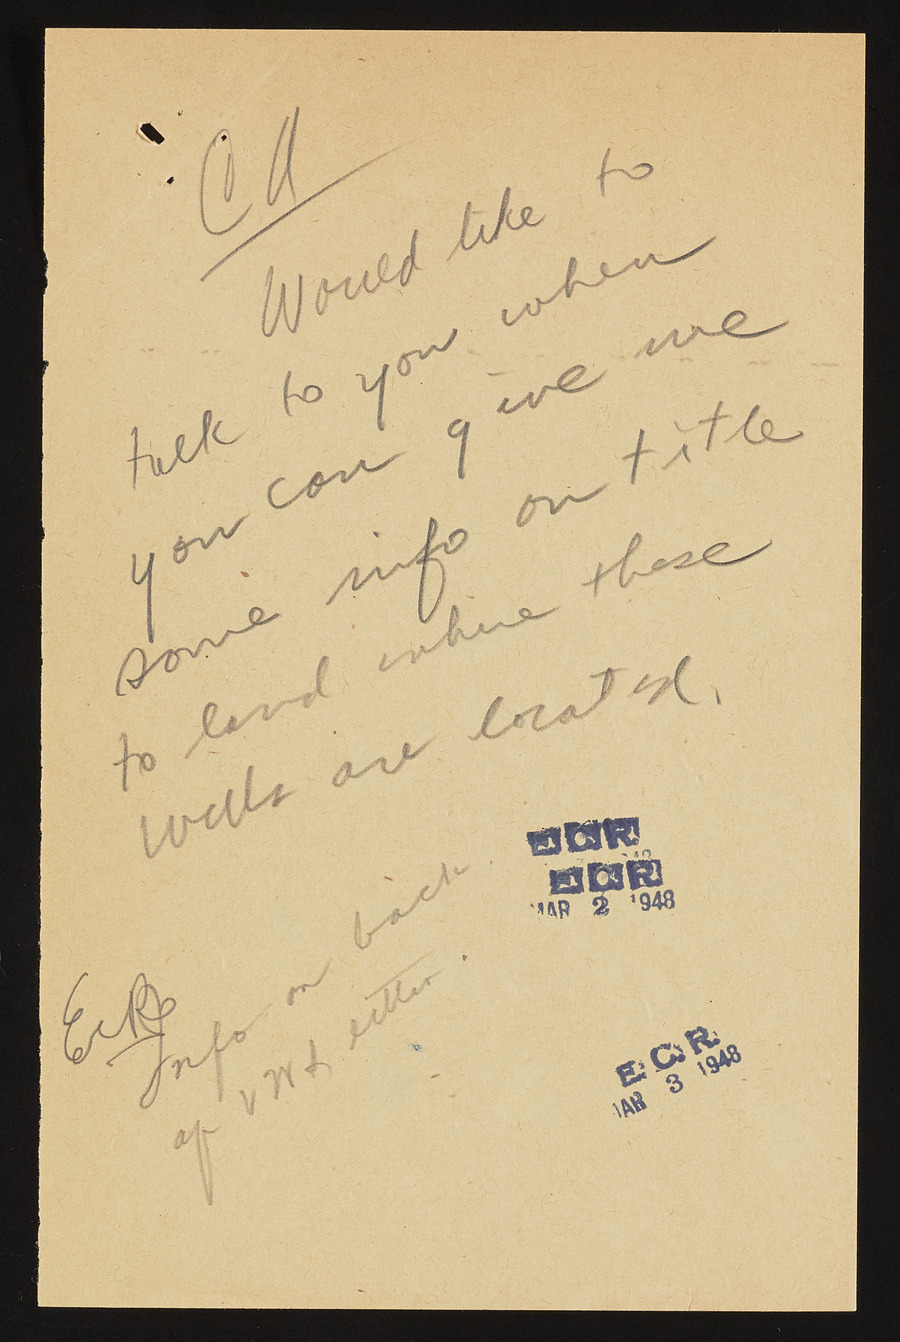 CA
Would like to
talk to you when
you can give me
some info on title
to land where these
wells are located.
ECR
ECR
MAR 2 1948
Info on back
of letter.
ECR
MAR 3 1948